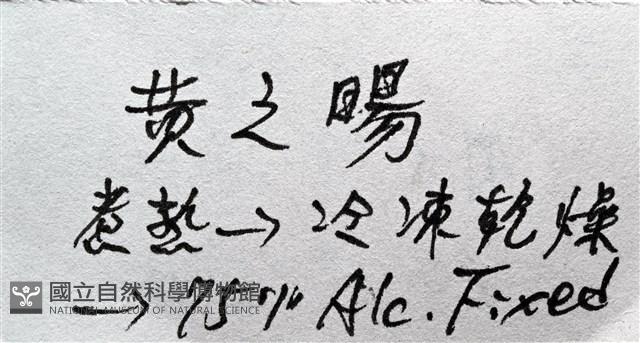 黄之暘
煮熱→冷凍乾燥
→75% Alc. Fixed
國立自然科學博物館
NATIONAL MUSEUM OF NATURAL SCIENCE